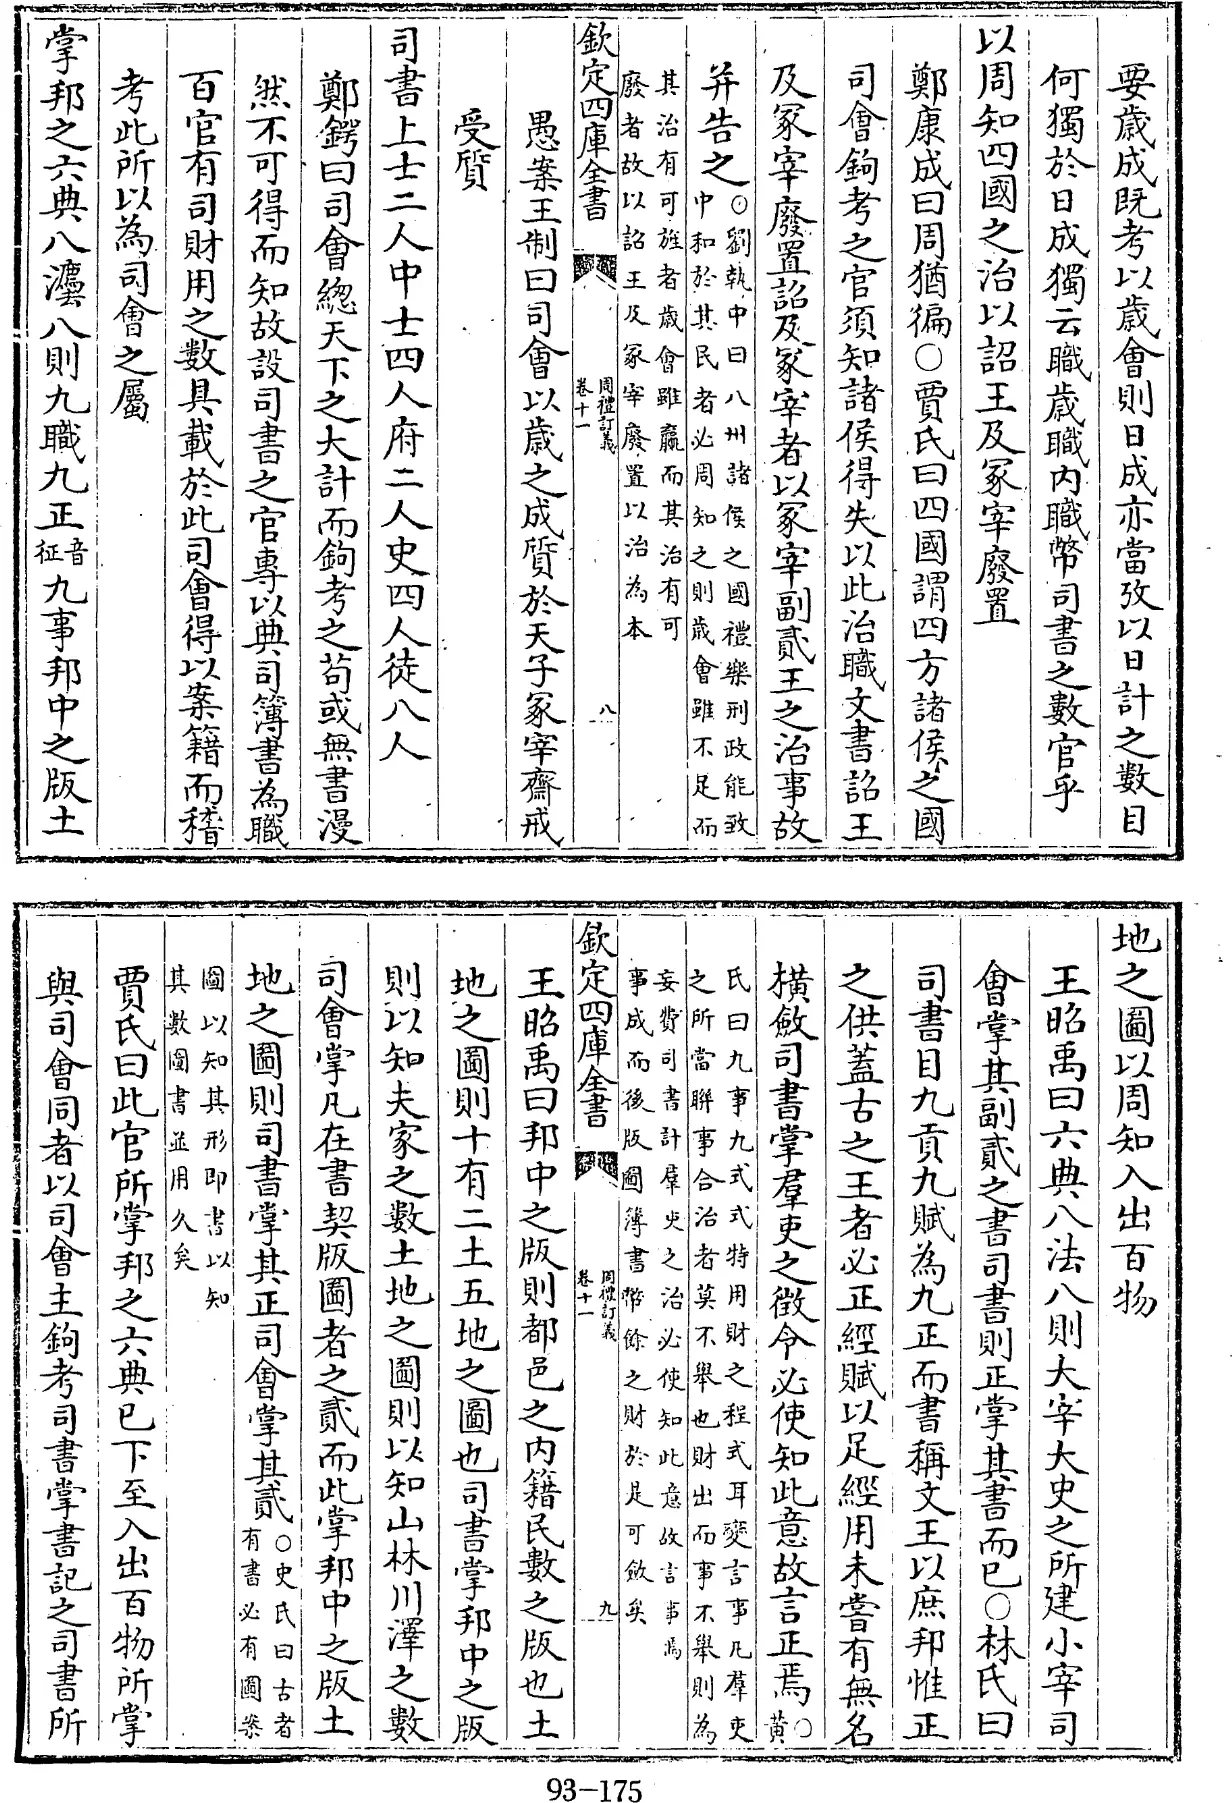 要歲成既考以歲會則日成亦當攷以日計之數目
何獨於日成獨云職歲職内職幣司書之數官乎
以周知四國之治以詔王及冢宰廢置
鄭康成曰周猶徧○賈氏曰四國謂四方諸侯之國
司會鉤考之官須知諸侯得失以此治職文書詔王
及冢宰廢置詔及冢宰者以冢宰副貳王之治事故
并告之○劉執中曰八州諸侯之國禮樂刑政能致
中和於其民者必周知之則歲會雖不足而
其治有可旌者歲會雖羸而其治有可
廢者故以詔王及冢宰廢置以治為本
欽定四庫全書 周禮訂義 卷十一 八
愚案王制曰司會以歲之成質於天子冢宰齋戒
受質
司書上士二人中士四人府二人史四人徒八人
鄭鍔曰司會總天下之大計而鉤考之苟或無書漫
然不可得而知故設司書之官專以典司簿書為職
百官有司財用之數具載於此司會得以案籍而稽
考此所以為司會之屬
掌邦之六典八灋八則九職九正音征九事邦中之版土
地之圖以周知入出百物
王昭禹曰六典八法八則大宰大史之所建小宰司
會掌其副貳之書司書則正掌其書而已○林氏曰
司書目九貢九賦為九正而書稱文王以庶邦惟正
之供蓋古之王者必正經賦以足經用未嘗有無名
橫斂司書掌羣吏之徵令必使知此意故言正焉○黄
氏曰九事九式式特用財之程式耳變言事凡羣吏
之所當聯事合治者莫不舉也財出而事不舉則為
妄費司書計羣吏之治必使知此意故言事焉
事成而後版圖簿書幣餘之財於是可斂矣
欽定四庫全書 周禮訂義 卷十一 九
王昭禹曰邦中之版則都邑之内籍民數之版也土
地之圖則十有二土五地之圖也司書掌邦中之版
則以知夫家之數土地之圖則以知山林川澤之數
司會掌凡在書契版圖者之貳而此掌邦中之版土
地之圖則司書掌其正司會掌其貳○史氏曰古者
有書必有圖案
圖以知其形即書以知
其數圖書並用久矣
賈氏曰此官所掌邦之六典已下至入出百物所掌
與司會同者以司會主鉤考司書掌書記之司書所
93-175